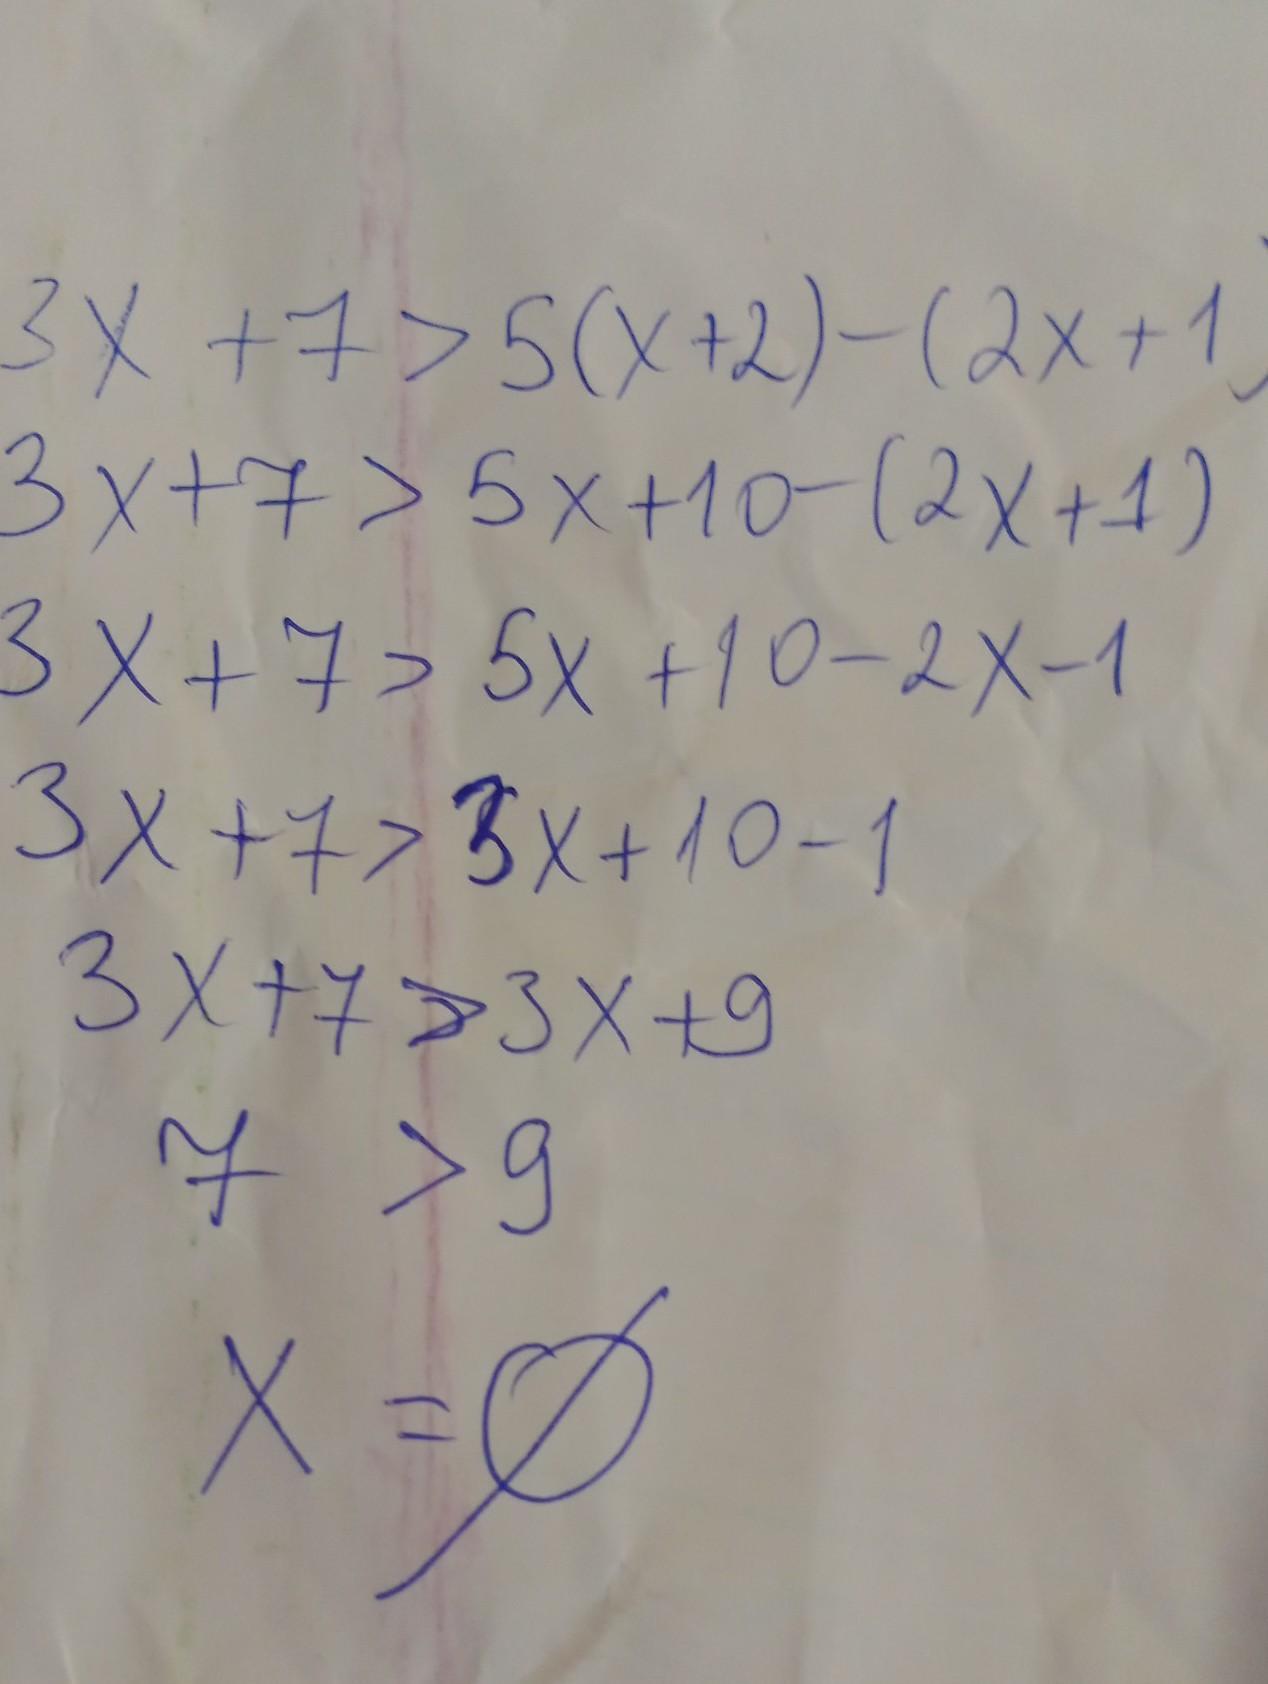 3x + 7 > 5(x+2) - (2x + 1)
3x + 7 > 5x + 10 - (2x + 1)
3x + 7 > 5x + 10 - 2x - 1
3x + 7 > 3x + 10 - 1
3x + 7 > 3x + 9
7 > 9
x = ∅